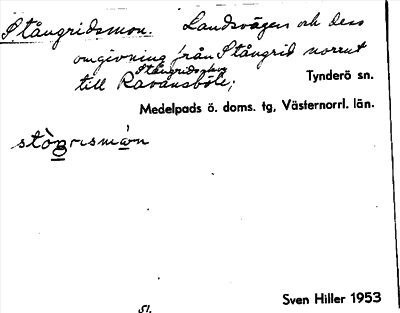 Stångridsmon. Landsvägen och dess
omgivning från Stångrid norrut
till Ravansböle; Tynderö sn.
Medelpads ö. doms. tg, Västernorrl. län.
Sven Hiller 1953
51.